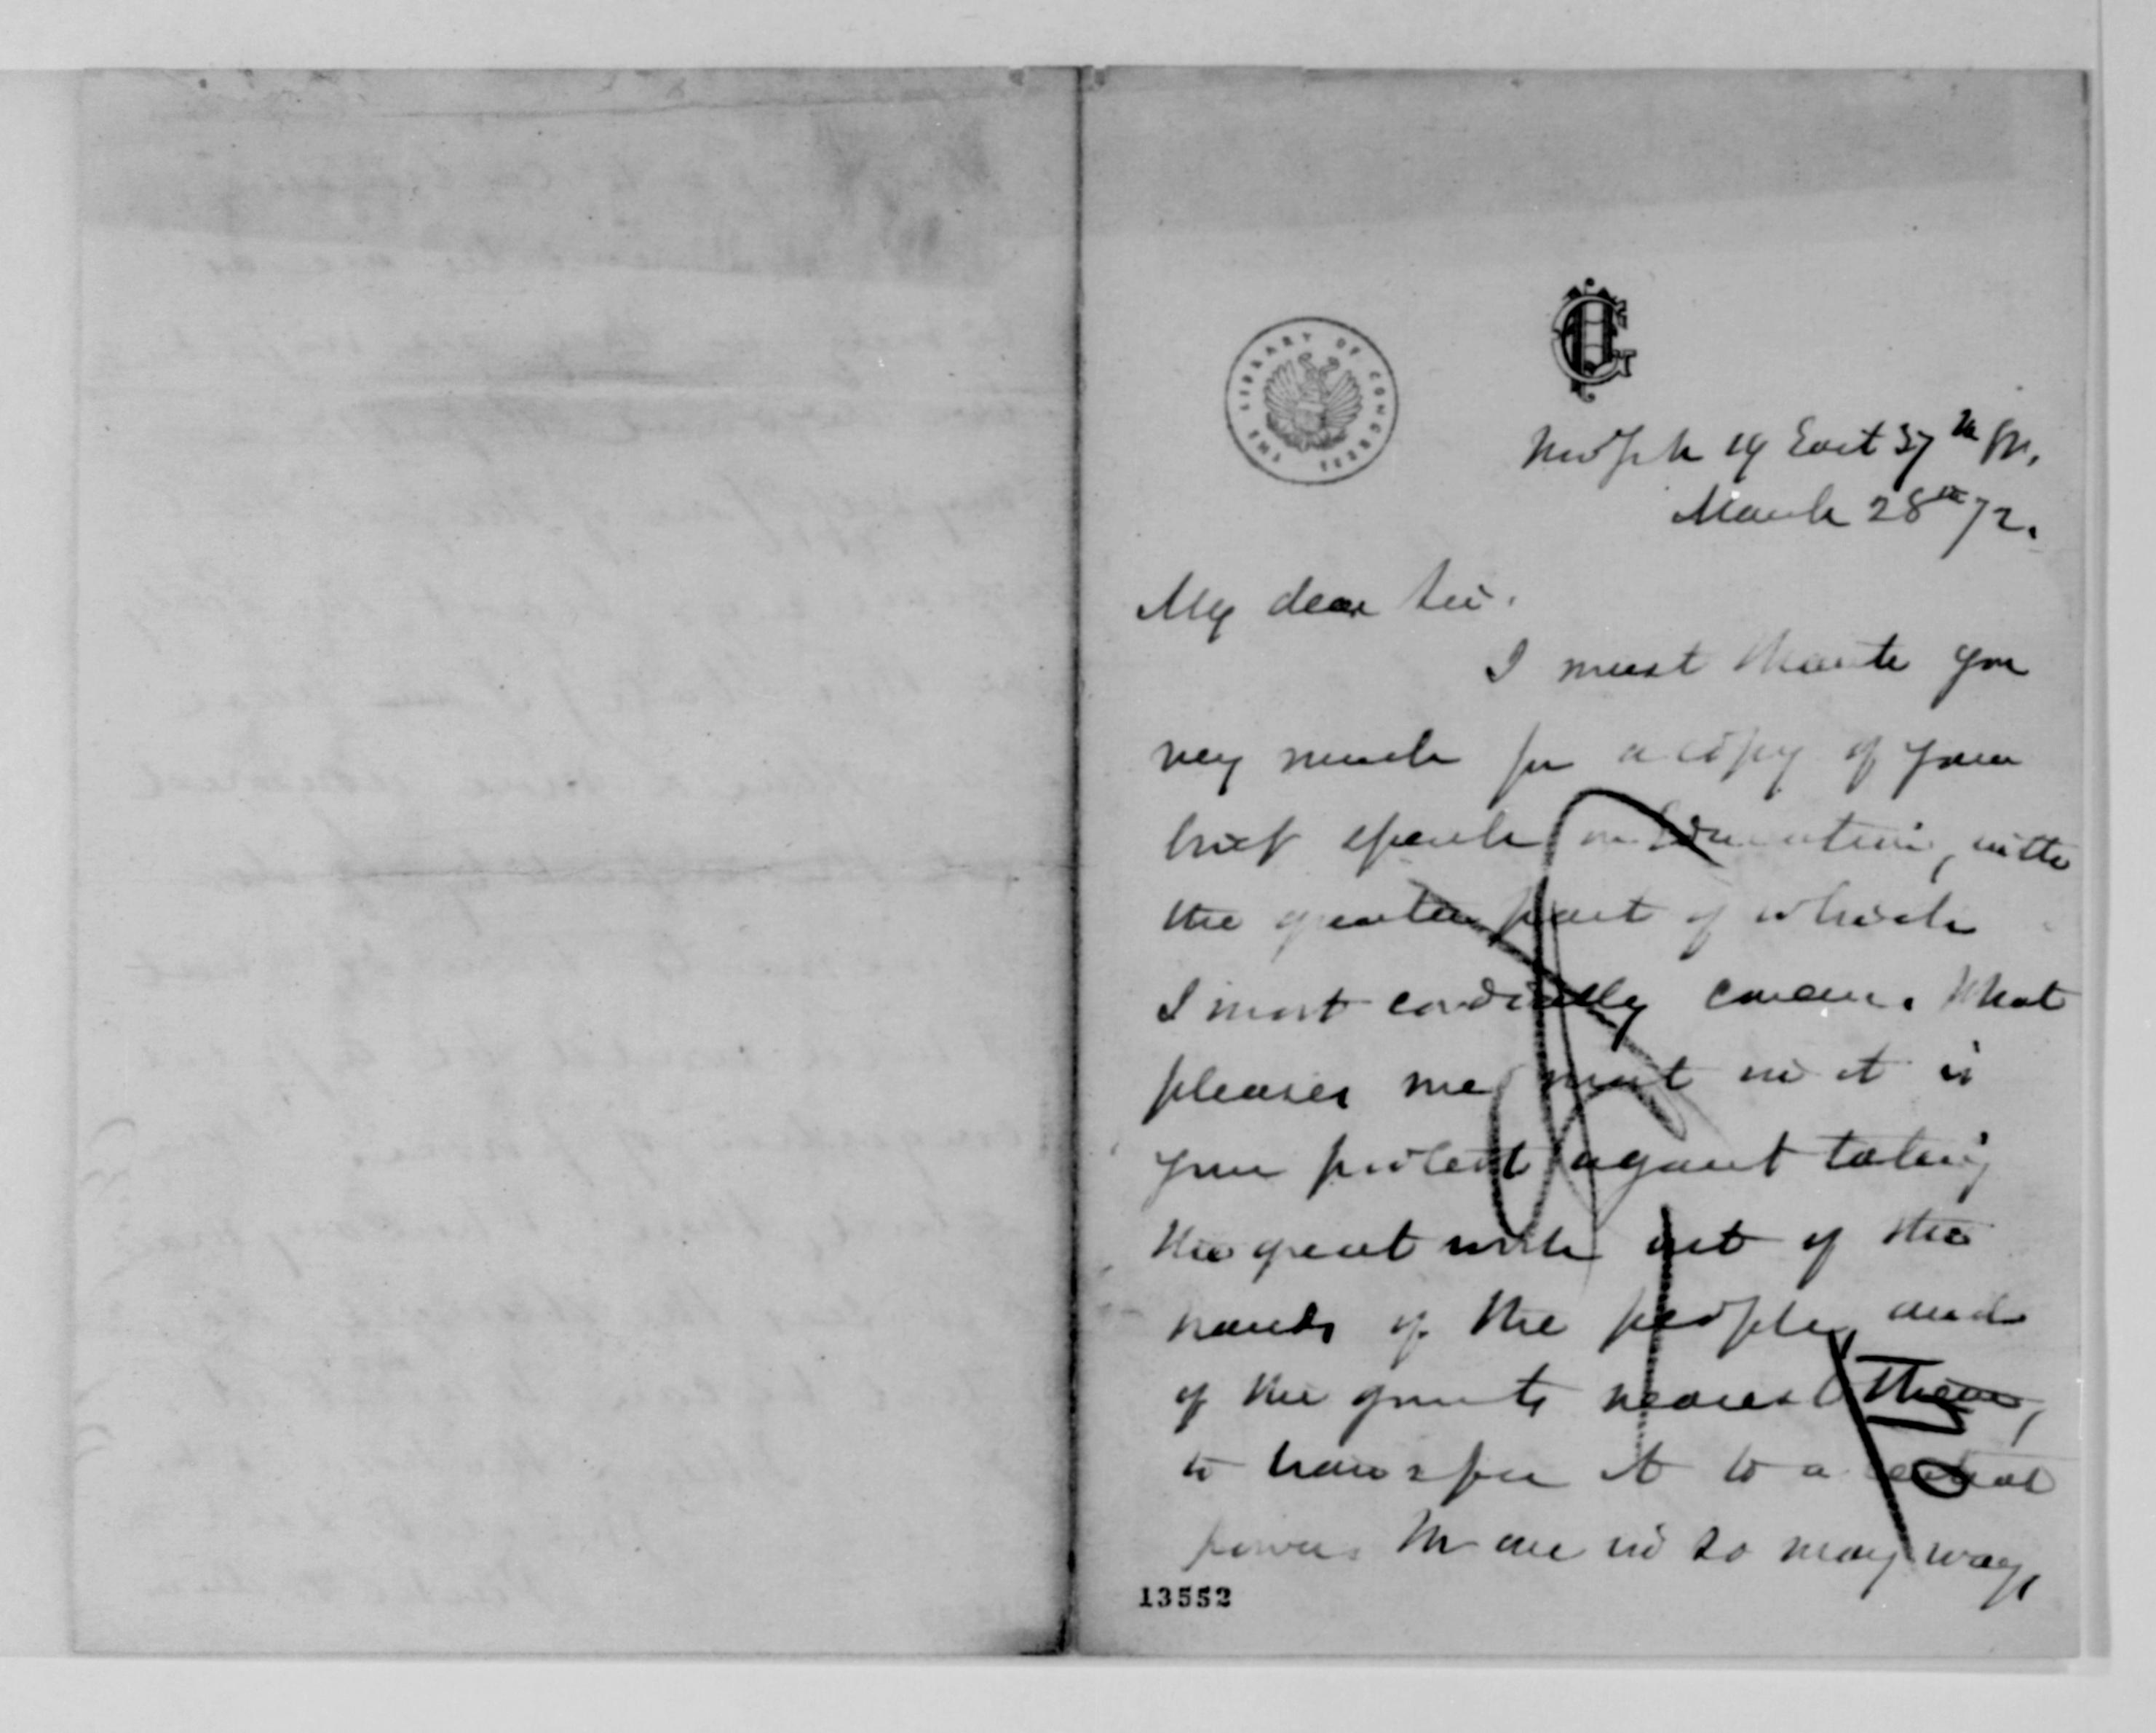 THE LIBRARY OF CONGRESS
New York 19 East 37th St.
March 28th 72.
My dear Sir.
I must thank you
very much for a copy of your
brief speech on Education, with
the greater part of which
I most cordially concur. What
pleases me most in it is
your protest against taking
this great work out of the
hands of the people, and
of the govmts nearest them,
to transfer it to a central
power. We are in so many ways,
13552